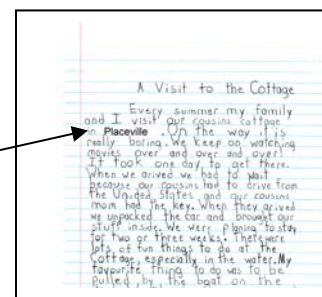 A Visit to the Cottage
Every summer my family
and I visit our cousins cottage
in Placeville. On the way it is
really boring. We keep on watching
movies over and over and over!
It took one day to get there.
When we arived we had to wait
because our cousins had to drive from
the United States and our cousins
mom had the key. When they arived
we unpacked the car and brought our
stuff inside. We were planing to stay
for two or three weeks. There were
lots of fun things to do at the
Cottage, especially in the water. My
favourite thing to do was to be
pulled, by the boat on the